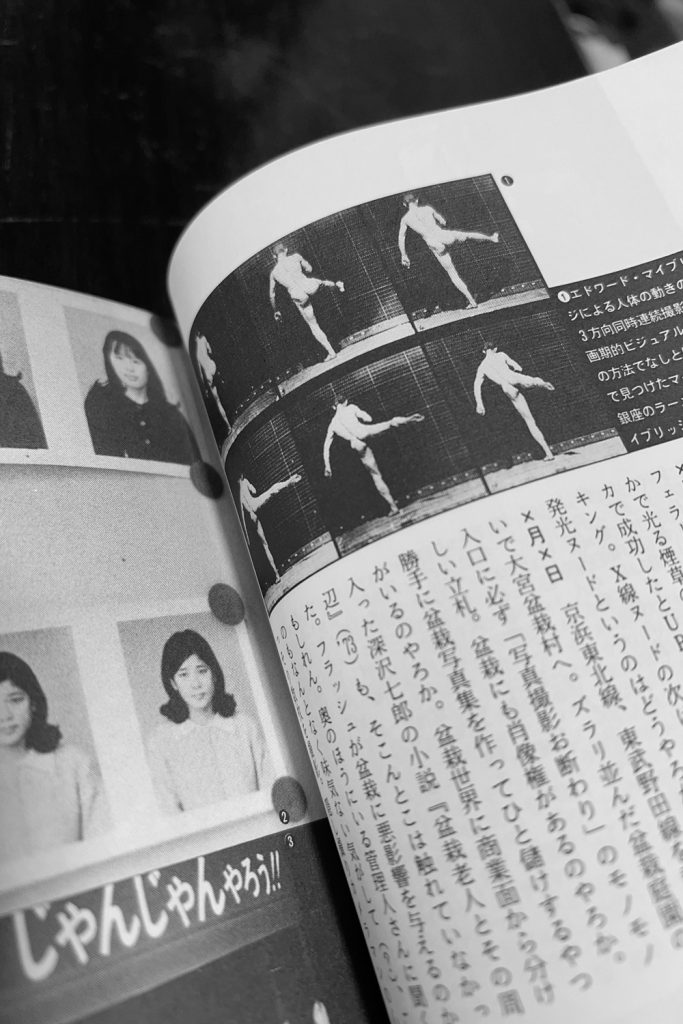 ❶
❶エドワード・マイブリ
ジによる人体の動きの
3方向同時連続撮影
画期的ビジュアル
の方法でなしと
で見つけたマ
銀座のラー
イブリッジ
かで光る煙草の
カで成功したとUP
キング。X線ヌードの次は
発光ヌードというのはどうやろ
×月×日　京浜東北線、東武野田線を
いで大宮盆栽村へ。ズラリ並んだ盆栽庭園の
入口に必ず「写真撮影お断わり」のモノモノ
しい立札。盆栽にも肖像権があるのやろか。
勝手に盆栽写真集を作ってひと儲けするやつ
がいるのやろか。盆栽世界に商業面から分け
入った深沢七郎の小説『盆栽老人とその周
辺』（'73）も、そこんとこは触れていなかっ
た。フラッシュが盆栽に悪影響を与えるのか
もしれん。奥のほうにいる管理人さんに聞く
❷
❸
じゃんじゃんやろう!!